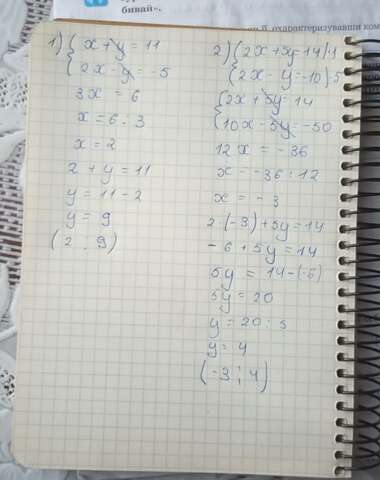 бивай».
й, охарактеризувавши ком
1) { x + y = 11
{ 2x - y = -5
3x = 6
x = 6 : 3
x = 2
2 + y = 11
y = 11 - 2
y = 9
(2 ; 9)
2) { 2x + 5y = 14 | · 1
{ 2x - y = -10 | · 5
{ 2x + 5y = 14
{ 10x - 5y = -50
12x = -36
x = -36 : 12
x = -3
2 · (-3) + 5y = 14
-6 + 5y = 14
5y = 14 - (-6)
5y = 20
y = 20 : 5
y = 4
(-3 ; 4)